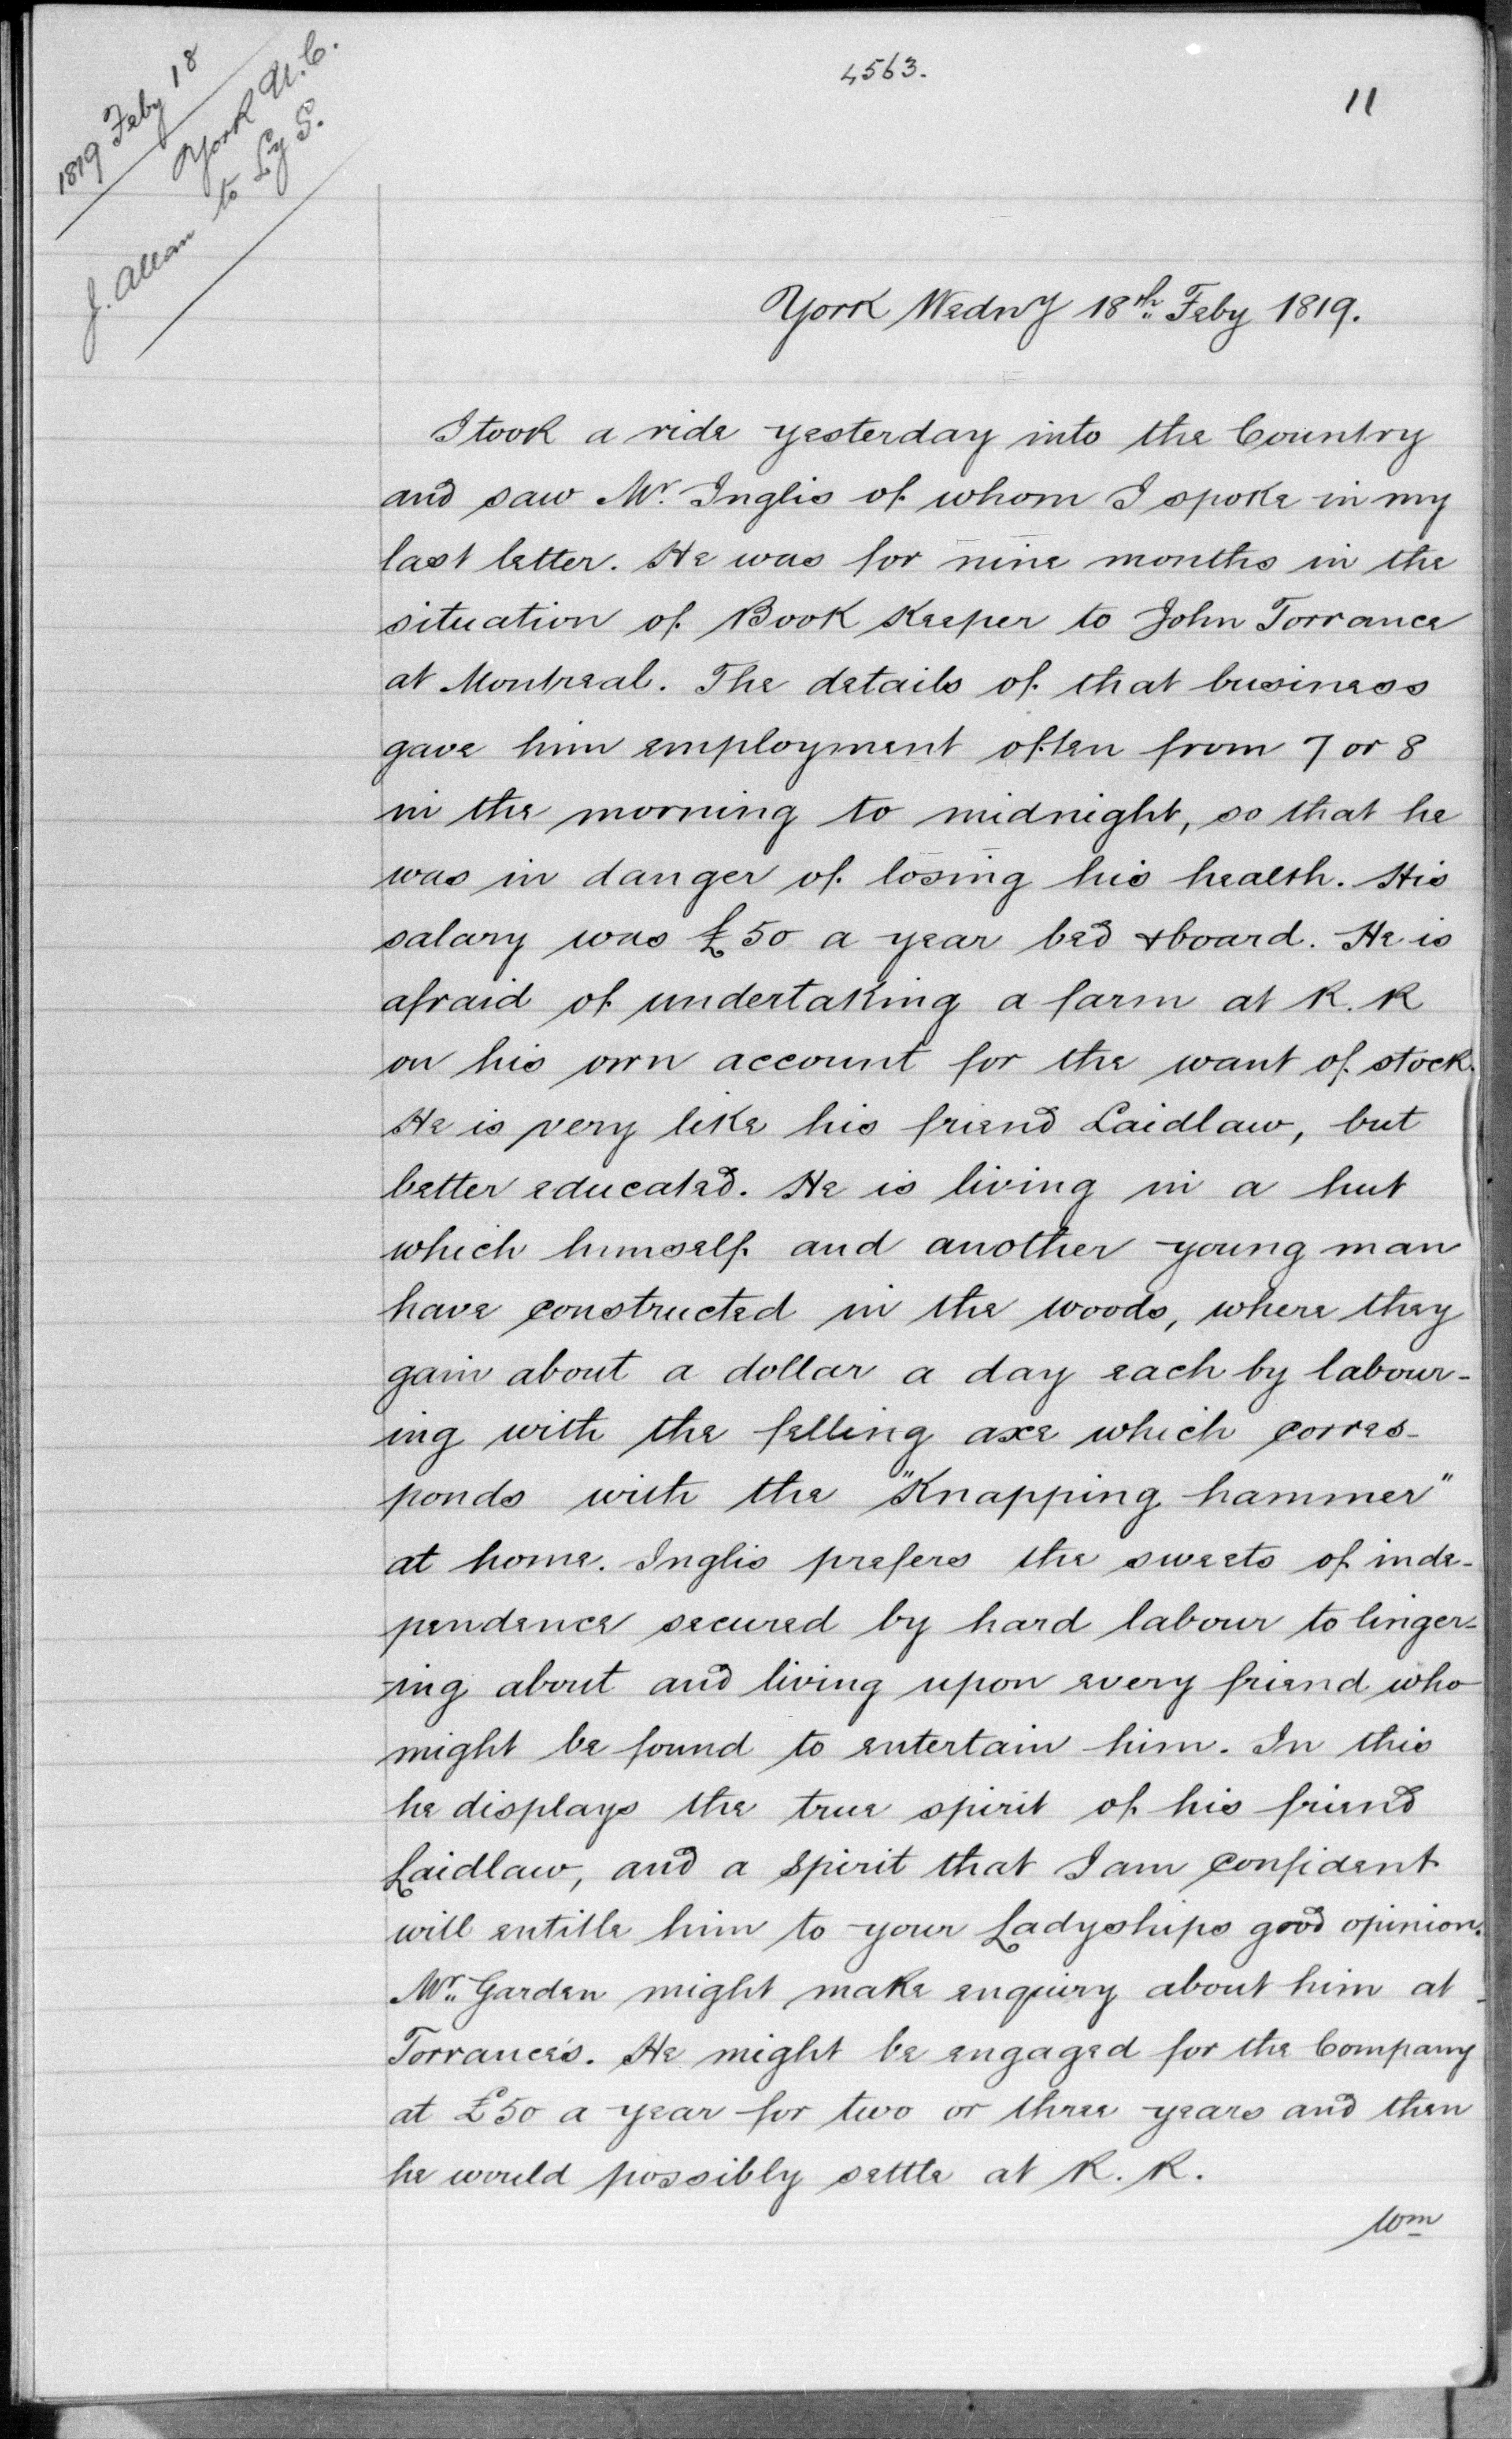 4563.
11
1819 Feby 18
York U.C.
J. Allan to Ly S.
York Wedny 18th Feby 1819.
I took a ride yesterday into the Country
and saw Mr. Inglis of whom I spoke in my
last letter. He was for nine months in the
situation of Book Keeper to John Torrance
at Montreal. The details of that business
gave him employment often from 7 or 8
in the morning to midnight, so that he
was in danger of losing his health. His
salary was £50 a year bed & board. He is
afraid of undertaking a farm at R. R
on his own account for the want of stock.
He is very like his friend Laidlaw, but
better educated. He is living in a hut
which himself and another young man
have constructed in the woods, where they
gain about a dollar a day each by labour-
ing with the felling axe which corres-
ponds with the "Knapping hammer"
at home. Inglis prefers the sweets of inde-
pendence secured by hard labour to linger-
ing about and living upon every friend who
might be found to entertain him. In this
he displays the true spirit of his friend
Laidlaw, and a spirit that I am confident
will entitle him to your Ladyships good opinion.
Mr. Garden might make enquiry about him at
Torrance's. He might be engaged for the Company
at £50 a year for two or three years and then
he would possibly settle at R. R.
Wm